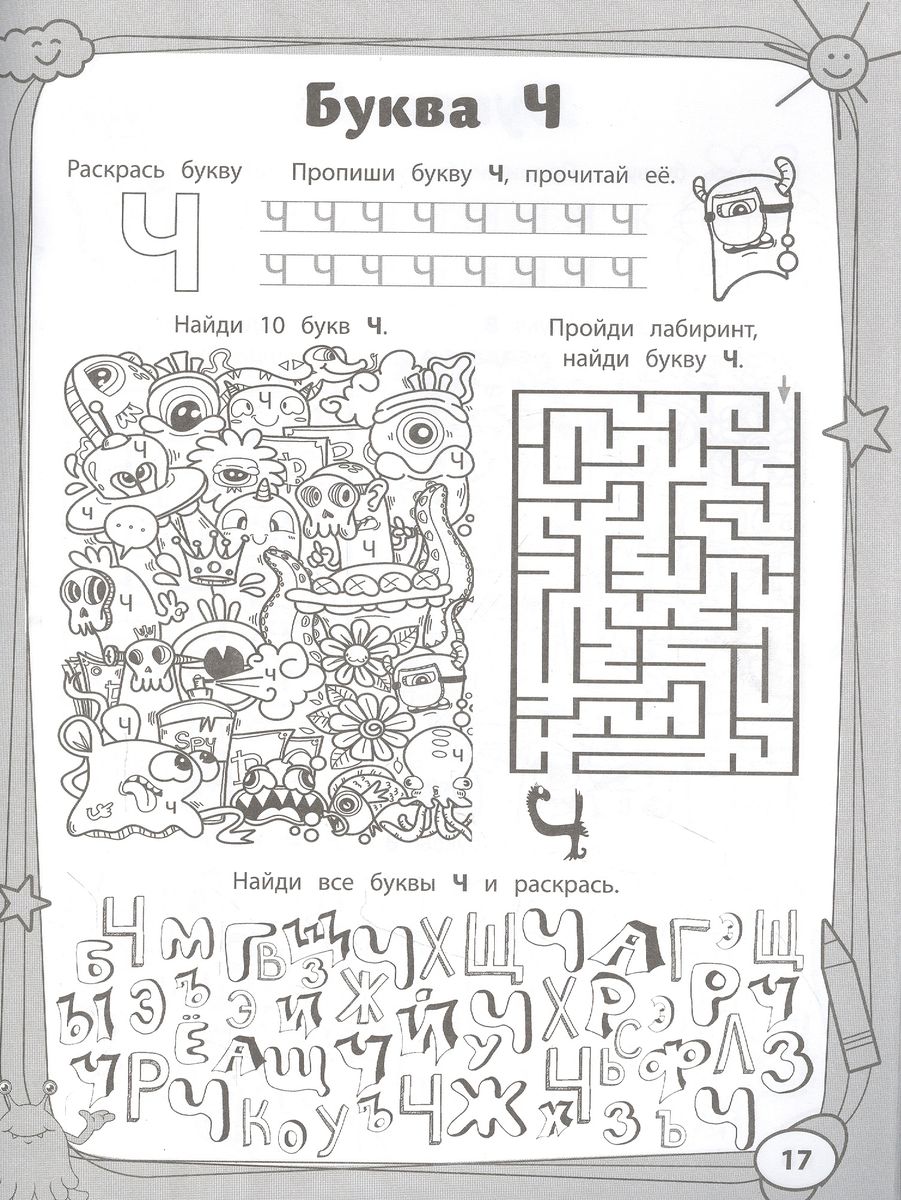 Буква Ч
Раскрась букву
Пропиши букву Ч, прочитай её.
Ч
Ч Ч Ч Ч Ч Ч Ч Ч
Ч Ч Ч Ч Ч Ч Ч Ч
Найди 10 букв Ч.
Пройди лабиринт,
найди букву Ч.
Ч
Ч
Ч
Ч
Ч
Ч
Ч
Ч
SPY
Ч
Ч
Ч
Найди все буквы Ч и раскрась.
Б Ч М Г В Щ З Ч Х Щ Ч А Г Э Щ
Ы Э Ъ Э И Ж Й Ч Х Р Э Р Ч
Ч Р Ё Ч А Щ Ч У Ч Ь С Ф Л З
К О У Ъ Ч Ж Х З Ъ Ч
17